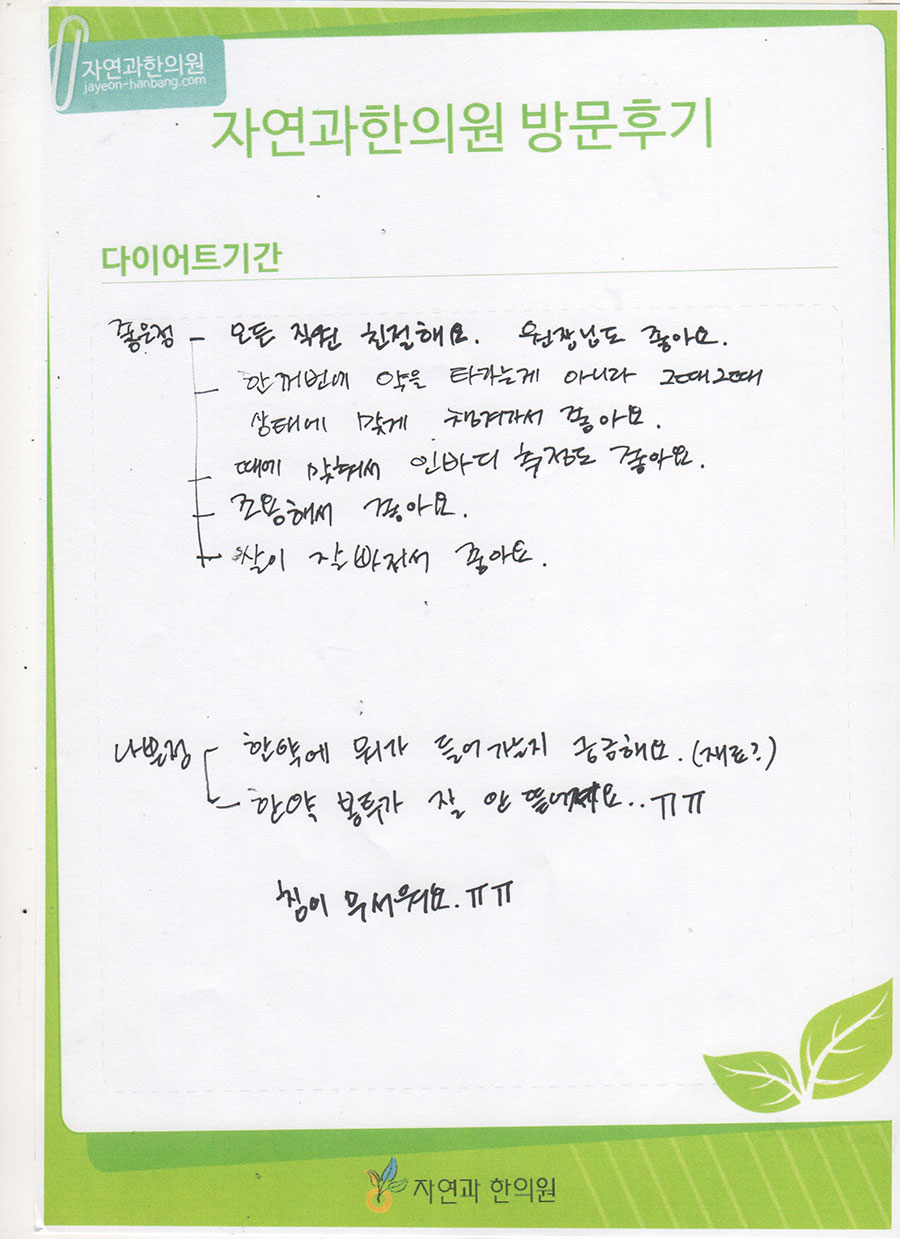 자연과한의원
jayeon-hanbang.com
자연과한의원 방문후기
다이어트기간
좋은점 - 모든 직원 친절해요. 원장님도 좋아요.
- 한꺼번에 약을 타가는게 아니라 그때그때
상태에 맞게 챙겨가서 좋아요.
- 때에 맞춰서 인바디 측정도 좋아요.
- 조용해서 좋아요.
- 살이 잘빠져서 좋아요.
나쁜점 - 한약에 뭐가 들어가는지 궁금해요. (재료?)
- 한약 봉투가 잘 안 뜯어져요.. ㅠㅠ
침이 무서워요. ㅠㅠ
자연과 한의원